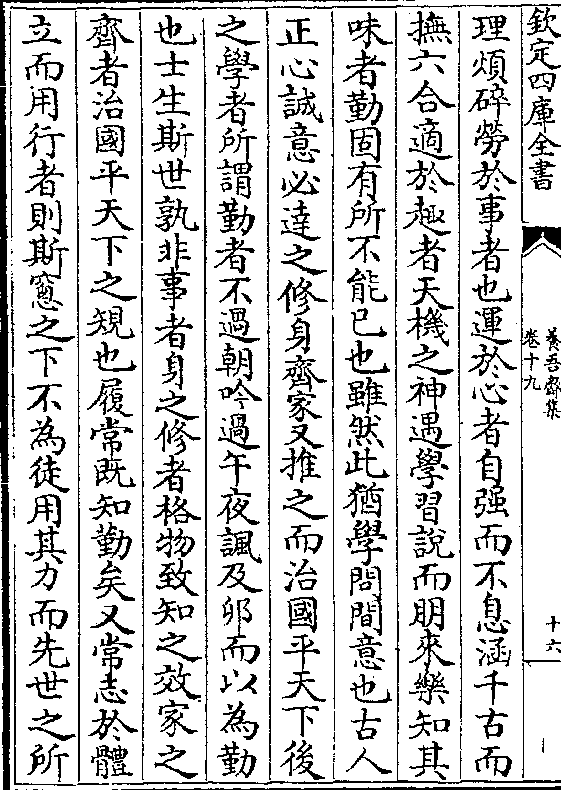 欽定四庫全書
養吾齋集
卷十九
十六
理煩碎勞於事者也運於心者自强而不息涵千古而
撫六合適於趣者天機之神遇學習說而朋來樂知其
味者勤固有所不能已也雖然此猶學問間意也古人
正心誠意必達之修身齊家又推之而治國平天下後
之學者所謂勤者不過朝吟過午夜諷及卯而以為勤
也士生斯世孰非事者身之修者格物致知之效家之
齊者治國平天下之規也履常既知勤矣又常志於體
立而用行者則斯窻之下不為徒用其力而先世之所